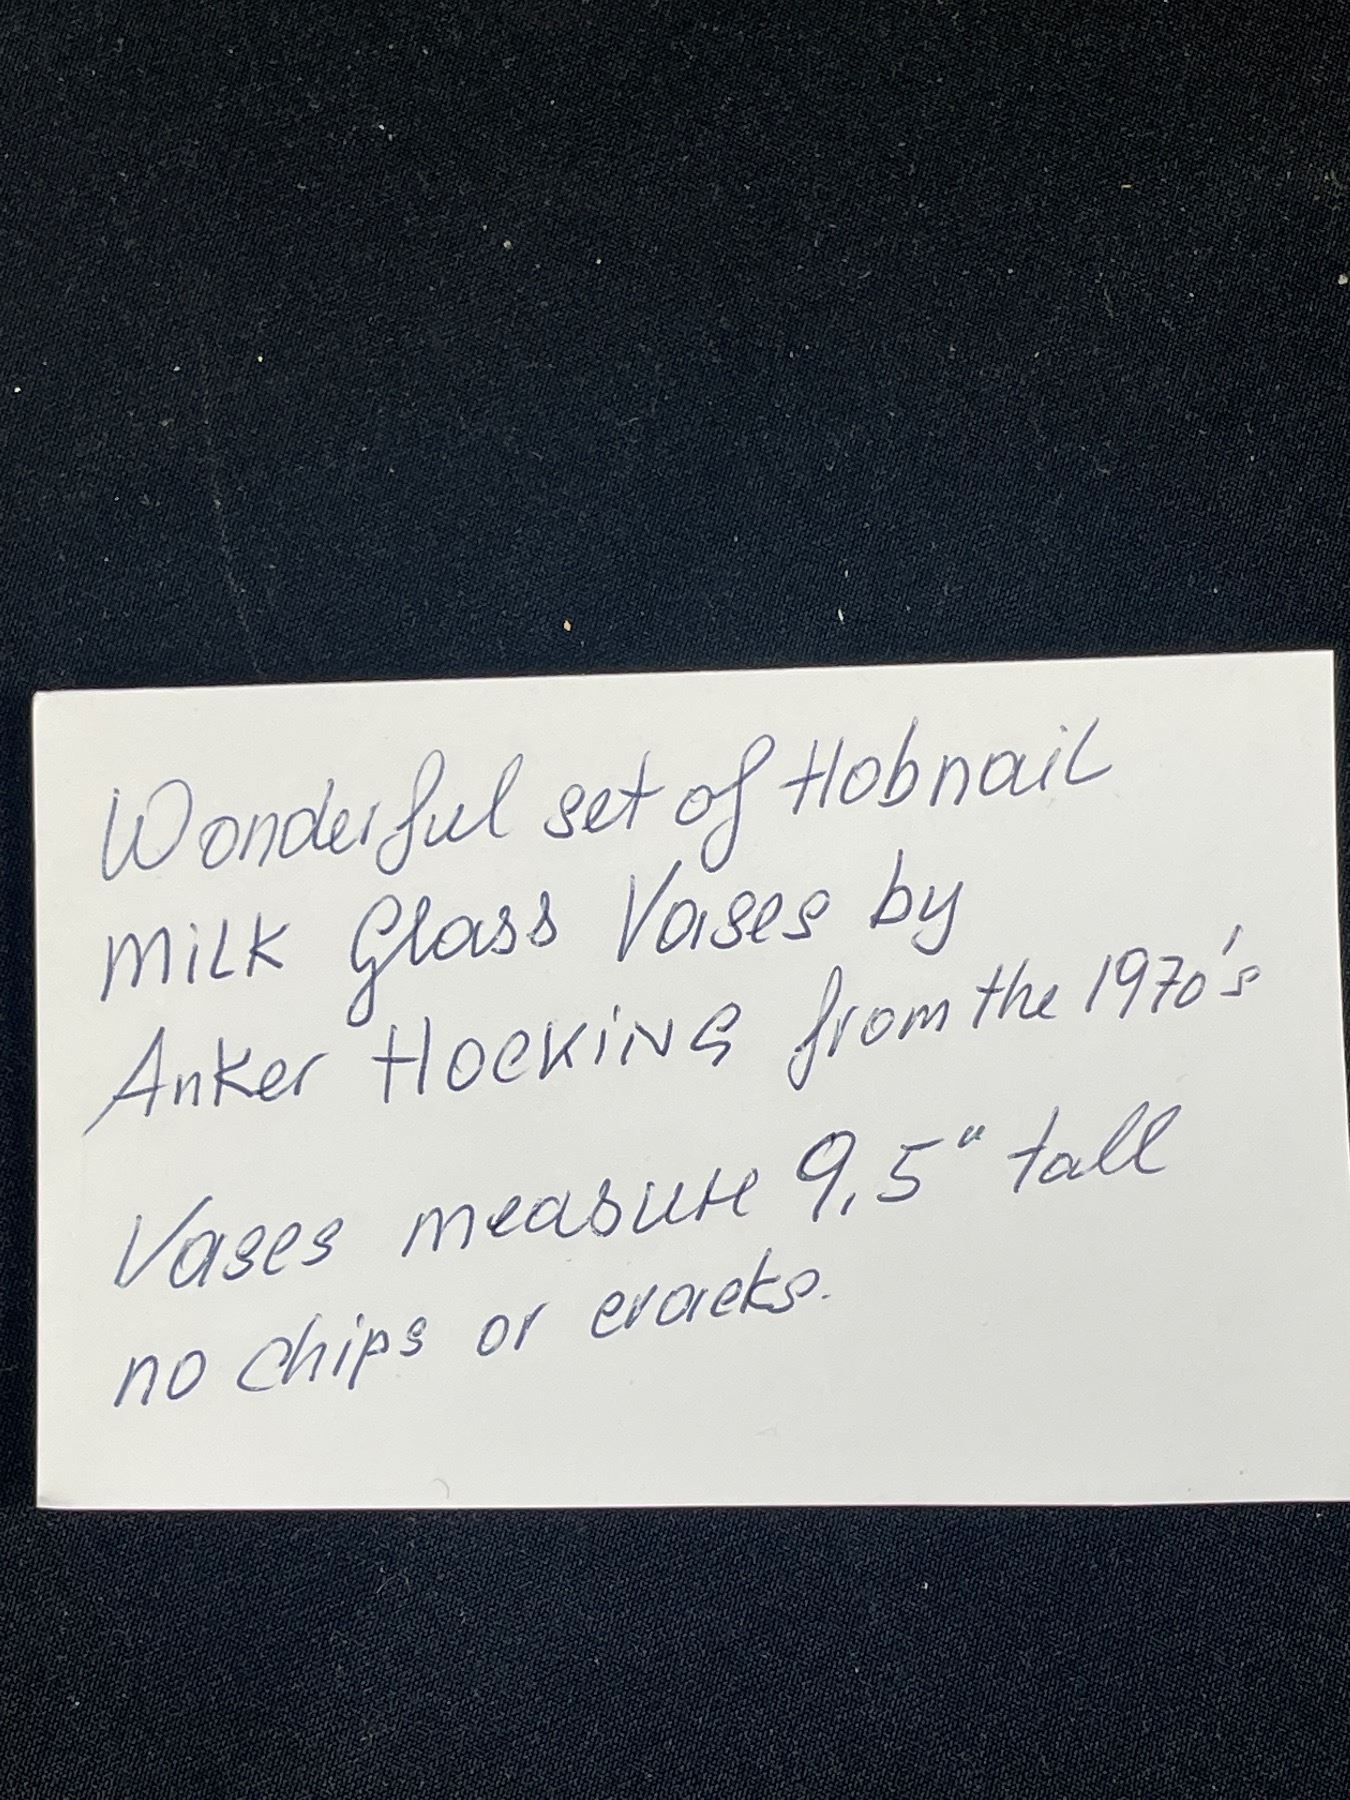 Wonderful set of Hobnail
Milk Glass Vases by
Anker Hocking from the 1970's
Vases measure 9,5" tall
no chips or cracks.